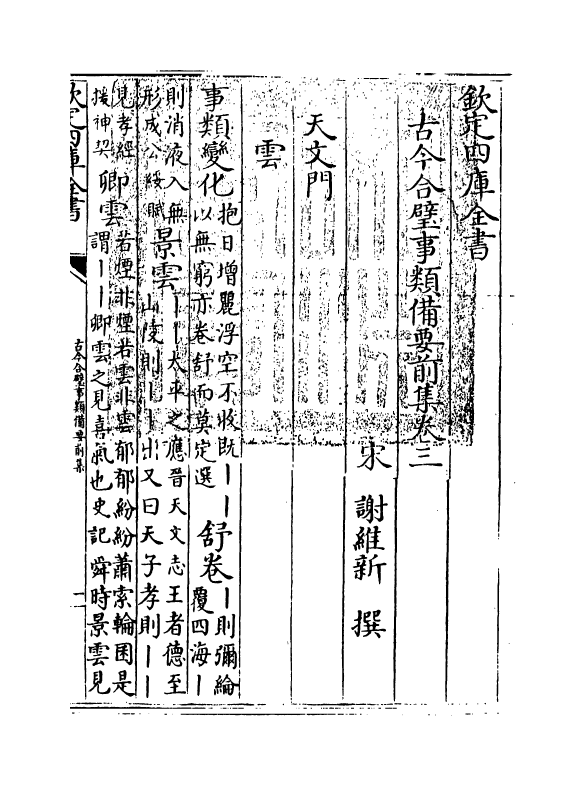 欽定四庫全書
古今合璧事類備要前集卷三
宋 謝維新 撰
天文門
雲
事類變化抱日增麗浮空不收既丨丨舒卷丨則彌綸
以無窮亦卷舒而莫定選覆四海丨
則消液入無景雲丨丨太平之應晉天文志王者德至
形成公綏賦山陵則丨丨出又曰天子孝則丨丨
見孝經卿雲若煙非煙若雲非雲郁郁紛紛蕭索輪囷是
援神契謂丨丨卿雲之見喜氣也史記舜時景雲見
欽定四庫全書
古今合璧事類備要前集
一